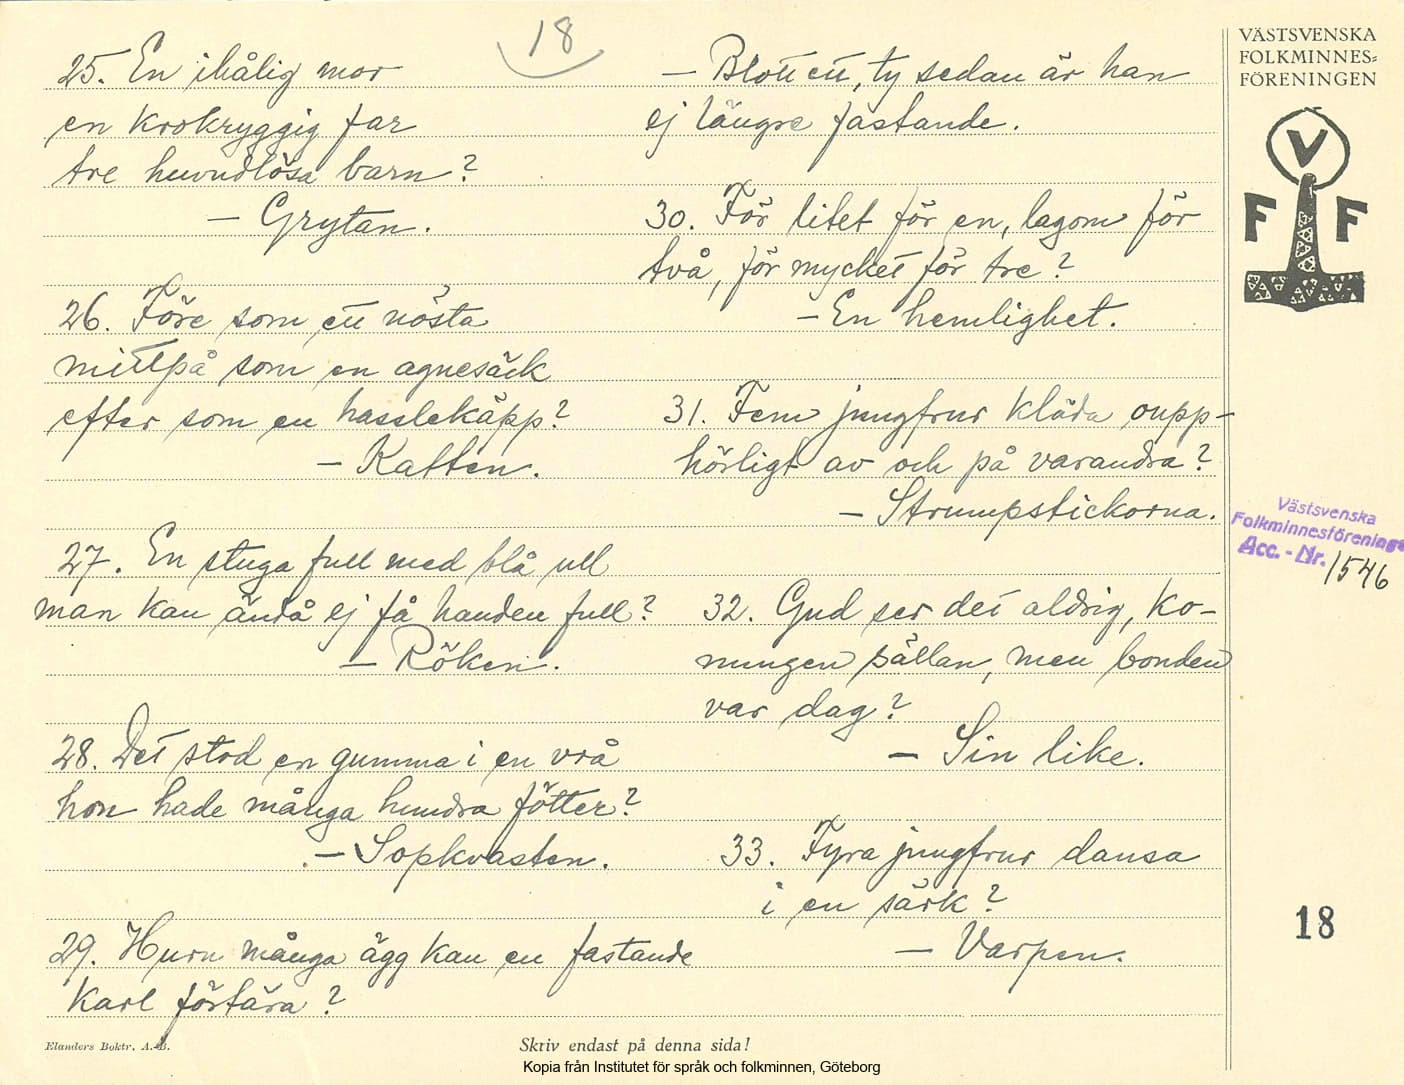 18
25. En ihålig mor
en krokryggig far
tre huvudlösa barn?
– Grytan.
26. Före som ett nösta
mittpå som en agnesäck
efter som en hasslekäpp?
– Katten.
27. En stuga full med blå ull
man kan ändå ej få handen full?
– Röken.
28. Det stod en gumma i en vrå
hon hade många hundra fötter?
– Sopkvasten.
29. Huru många ägg kan en fastande
karl förtära?
– Blott ett, ty sedan är han
ej längre fastande.
30. För litet för en, lagom för
två, för mycket för tre?
– En hemlighet.
31. Fem jungfrur kläda oupp-
hörligt av och på varandra?
– Strumpstickorna.
32. Gud ser det aldrig, ko-
nungen sällan, men bonden
var dag?
– Sin like.
33. Fyra jungfrur dansa
i en särk?
– Varpen.
VÄSTSVENSKA
FOLKMINNES-
FÖRENINGEN
V
F F
Västsvenska
Folkminnesförening
Acc.-Nr. 1546
18
Elanders Boktr. A.-B.
Skriv endast på denna sida!
Kopia från Institutet för språk och folkminnen, Göteborg